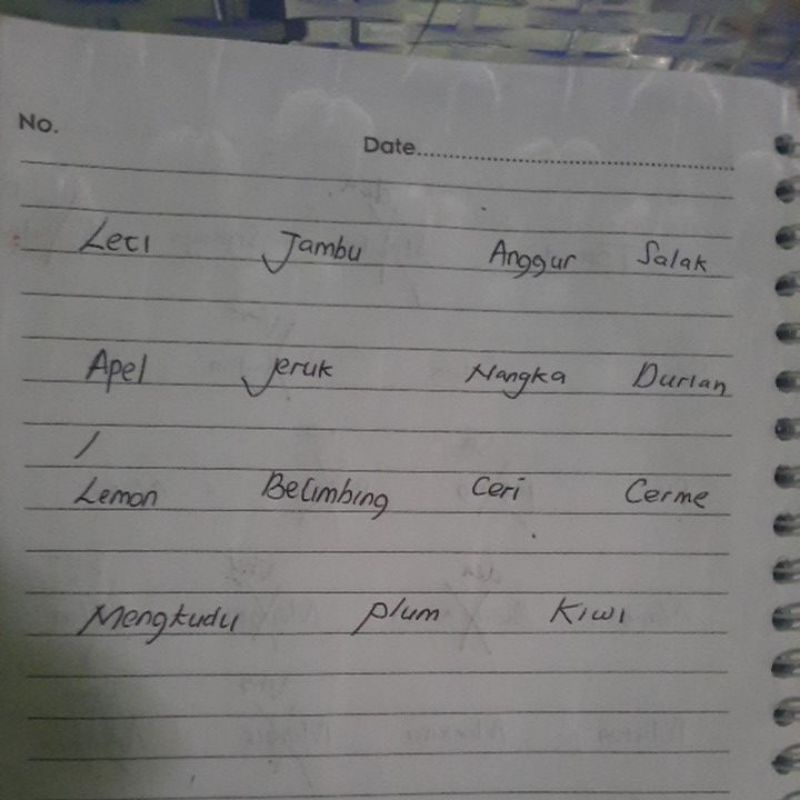 No.
Date
Leci Jambu Anggur Salak
Apel Jeruk Nangka Durian
Lemon Belimbing Ceri Cerme
Mengkudu plum Kiwi